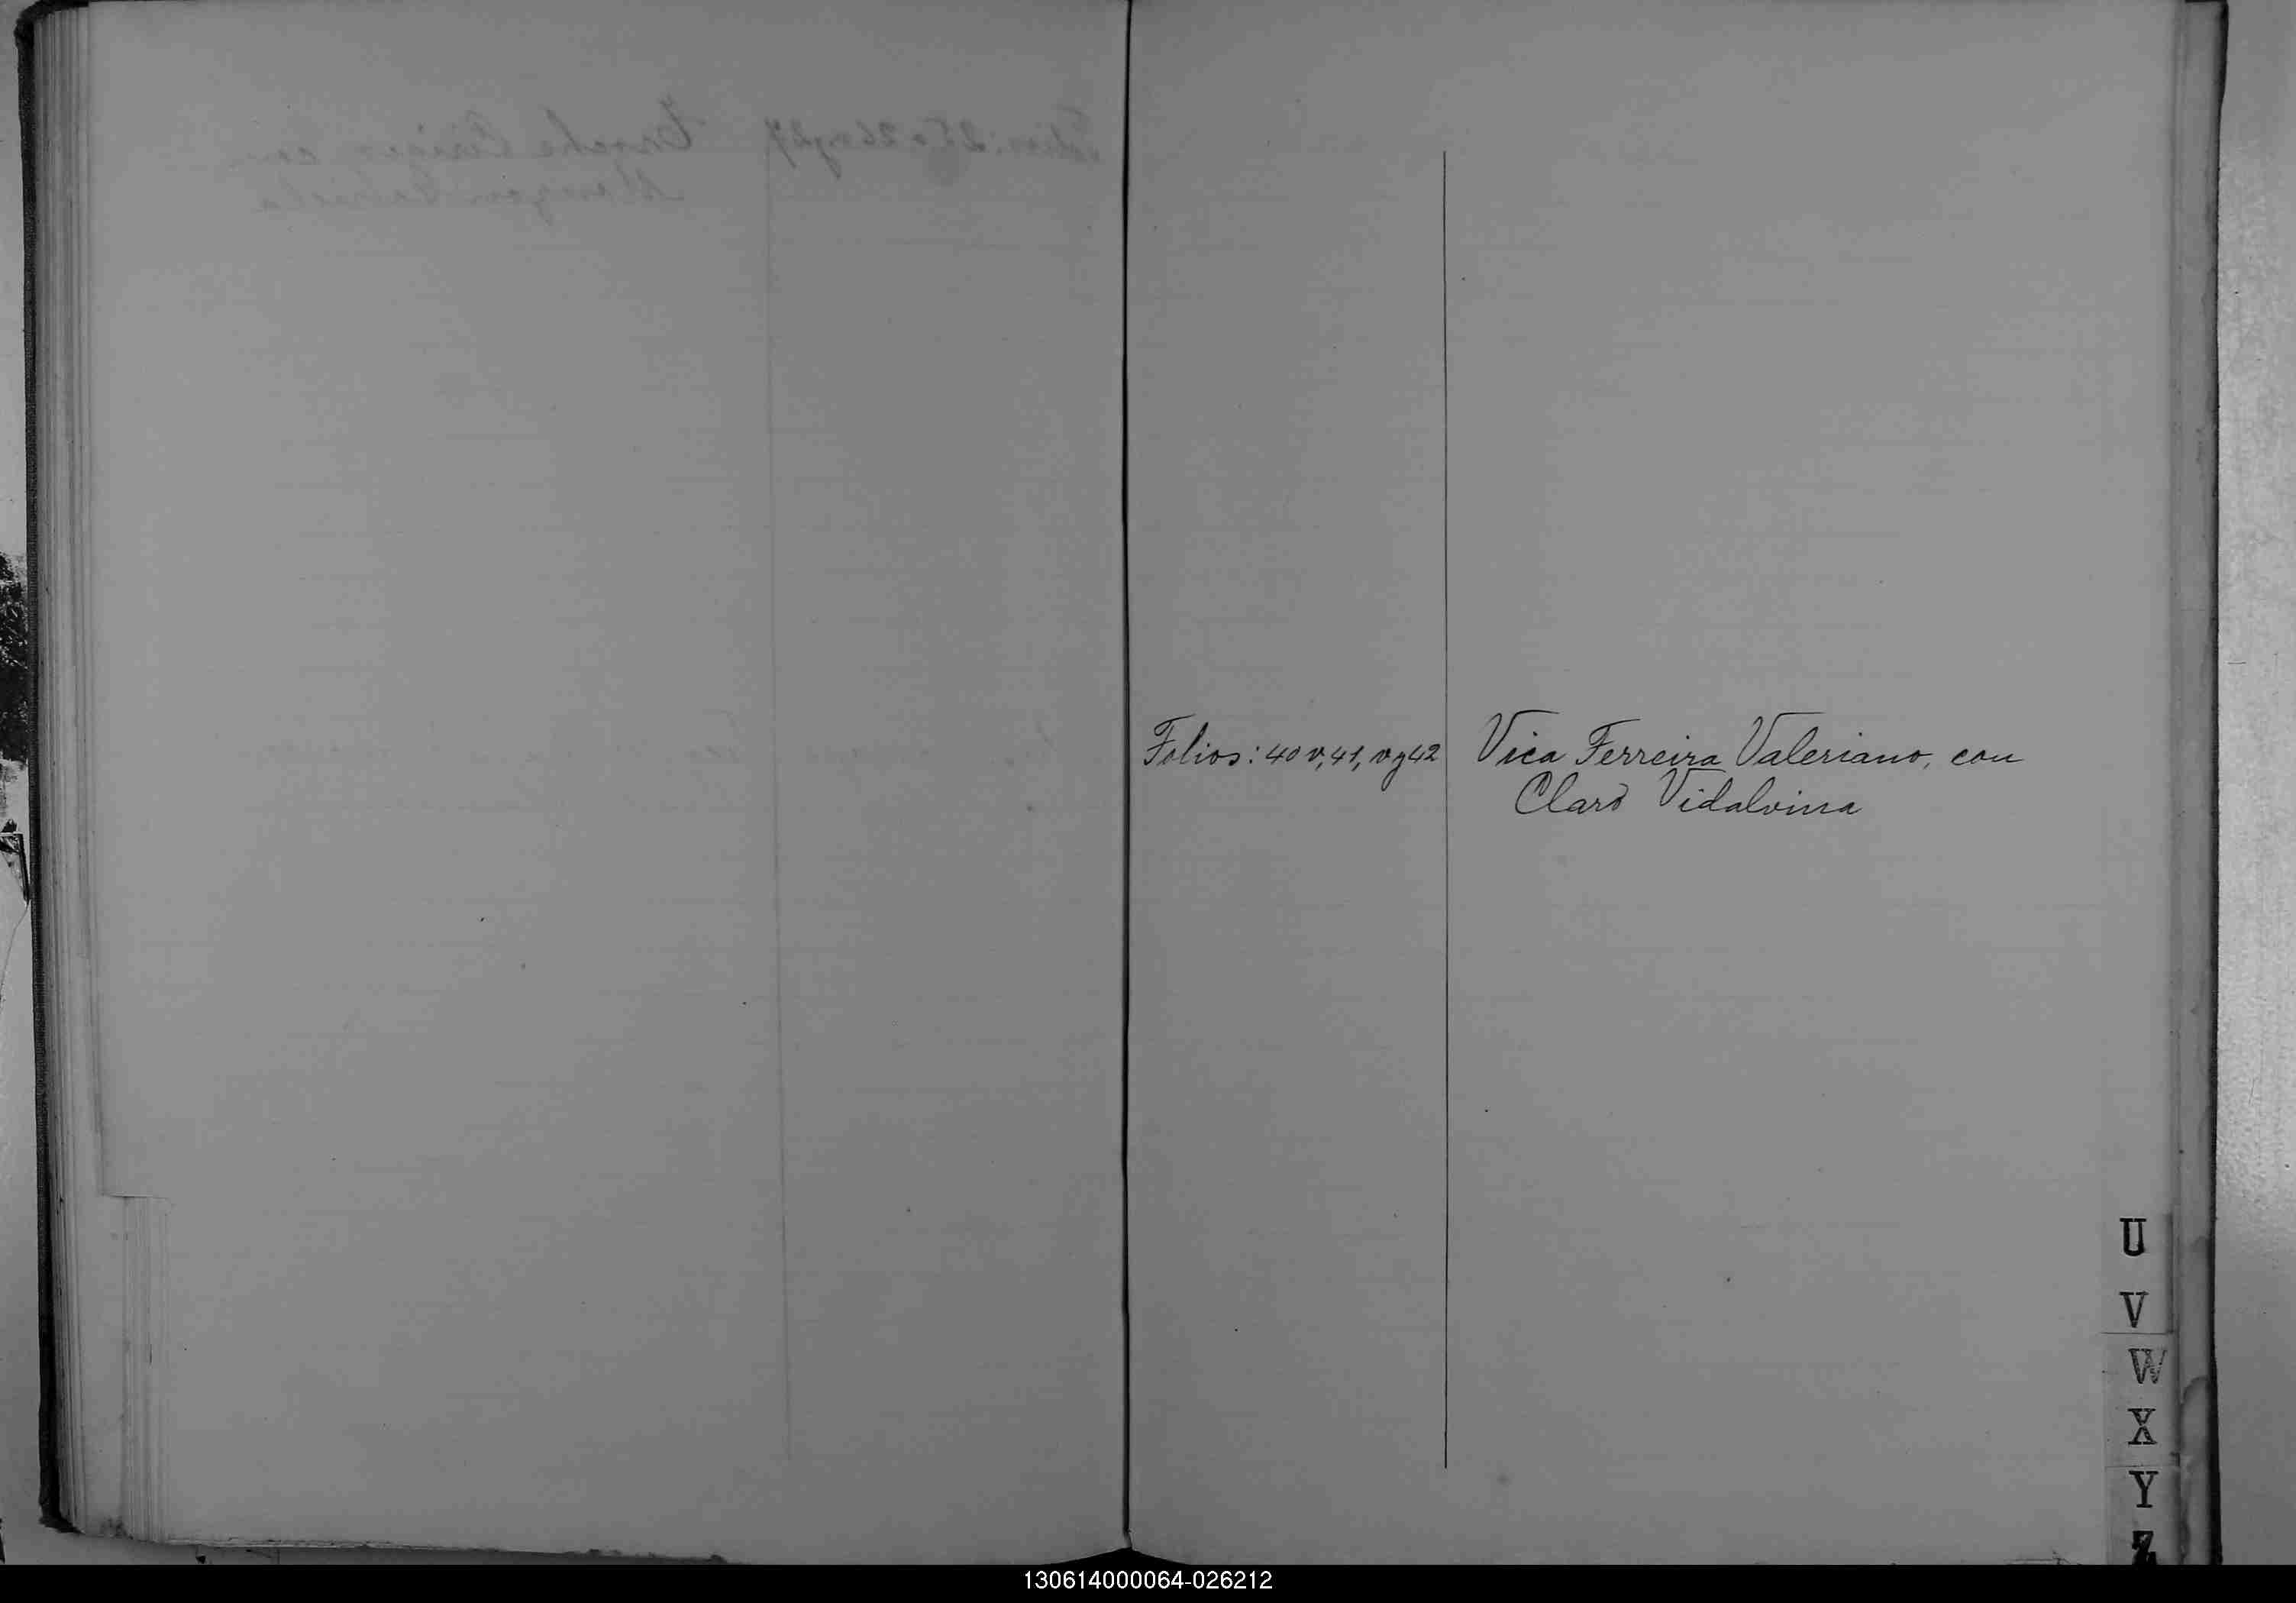 Folios: 40 v, 41, v y 42 Vica Ferreira Valeriano, con
Claro Vidalvina
U
V
W
X
Y
Z
130614000064-026212